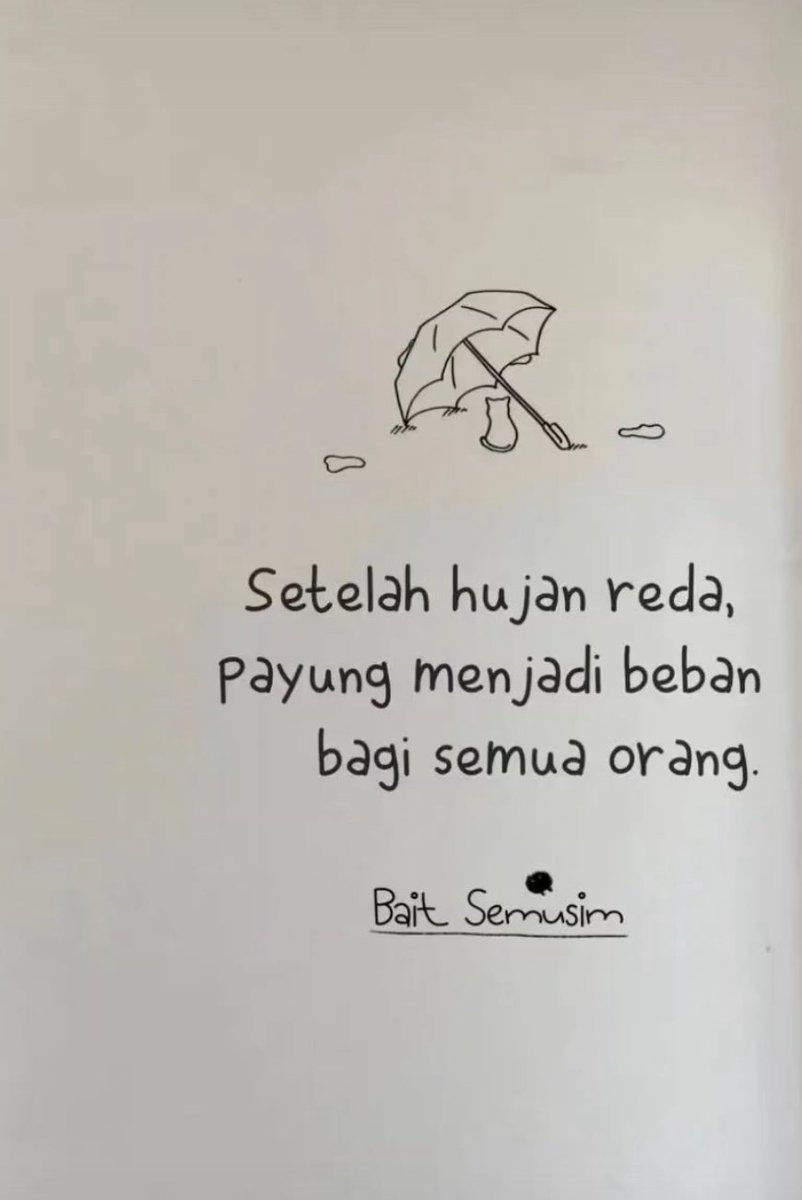 Setelah hujan reda,
payung menjadi beban
bagi semua orang.
Bait Semusim